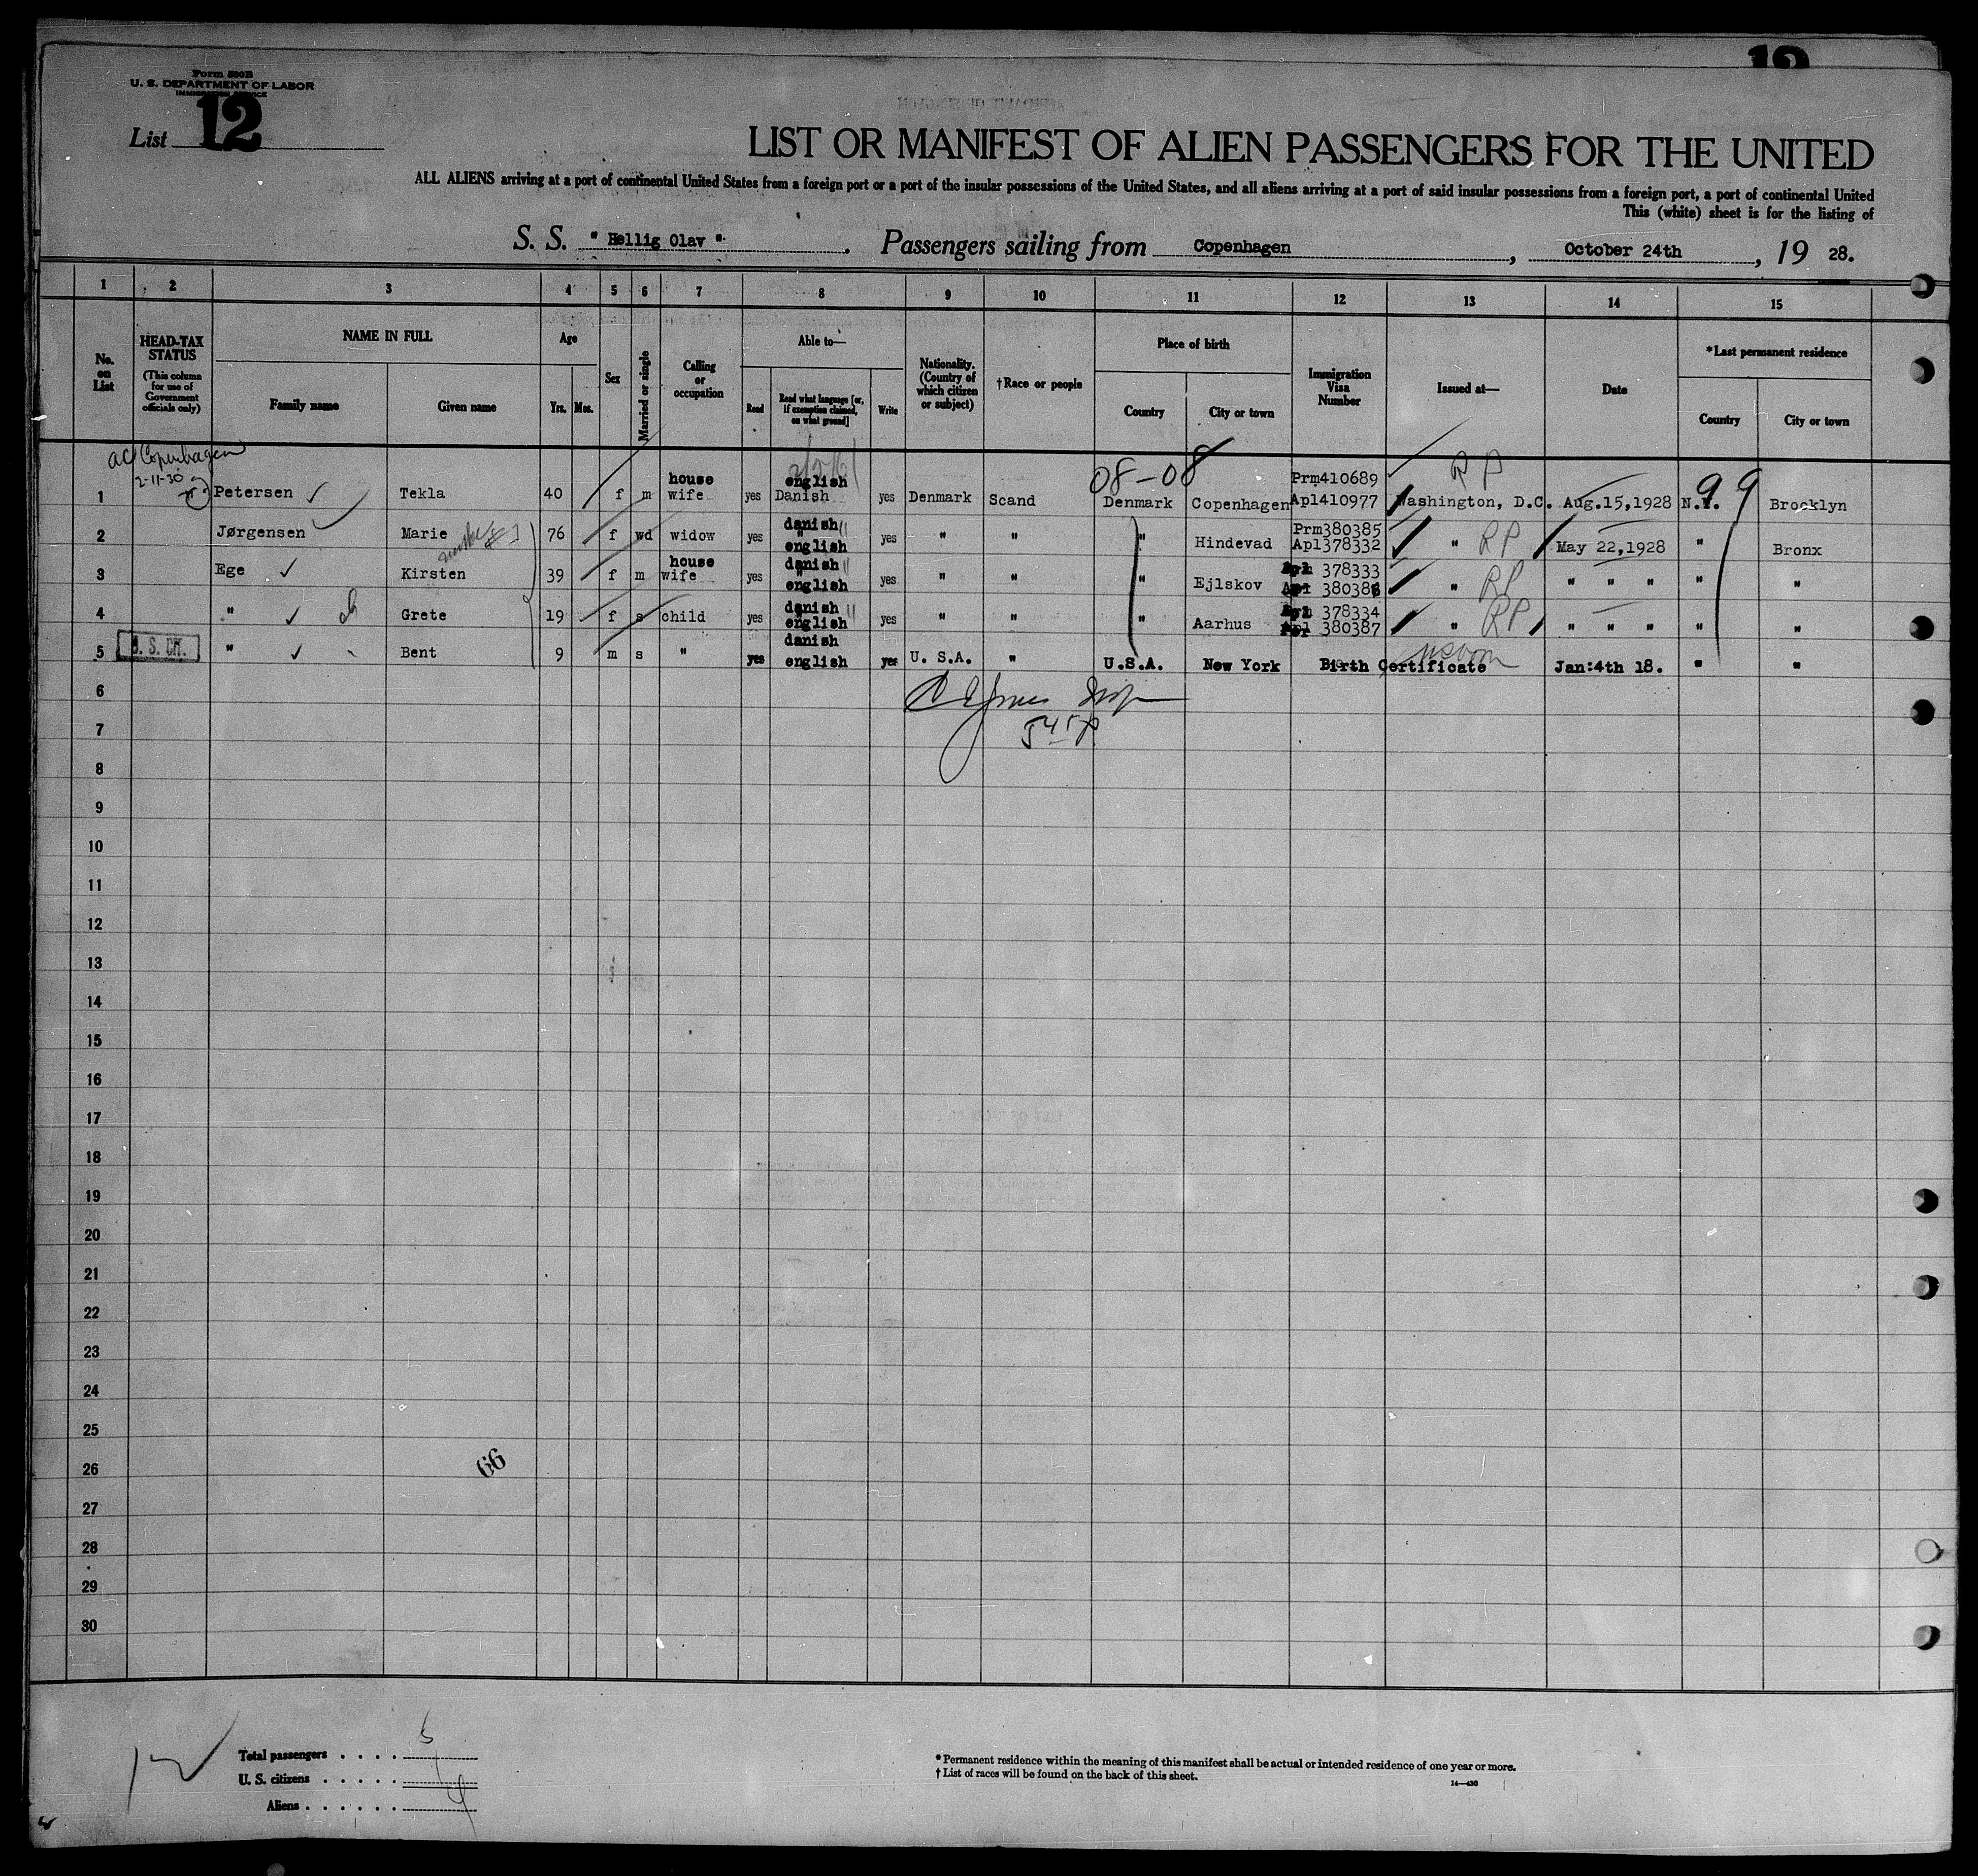 12
Form 500B
U. S. DEPARTMENT OF LABOR
IMMIGRATION SERVICE
List 12
LIST OR MANIFEST OF ALIEN PASSENGERS FOR THE UNITED
ALL ALIENS arriving at a port of continental United States from a foreign port or a port of the insular possessions of the United States, and all aliens arriving at a port of said insular possessions from a foreign port, a port of continental United
This (white) sheet is for the listing of
S. S. " Hellig Olav ". Passengers sailing from Copenhagen, October 24th, 19 28.
1 2 3 4 5 6 7 8 9 10 11 12 13 14 15
No. on List
HEAD-TAX STATUS (This column for use of Government officials only)
NAME IN FULL
Family name Given name
Age
Yrs. Mos.
Sex
Married or single
Calling or occupation
Able to—
Read Read what language [or, if exemption claimed, on what ground] Write
Nationality. (Country of which citizen or subject)
†Race or people
Place of birth
Country City or town
Immigration Visa Number
Issued at—
Date
*Last permanent residence
Country City or town
Copenhagen
2-11-30
08-08 RP 99
1 Petersen Tekla 40 f m house wife yes english Danish yes Denmark Scand Denmark Copenhagen Prm410689 Apl410977 Washington, D.C. Aug.15,1928 N.Y. Brooklyn
2 Jørgensen Marie 76 f wd widow yes danish " english yes " " " Hindevad Prm380385 Apl378332 " RP May 22,1928 " Bronx
3 Ege Kirsten 39 f m house wife yes danish " english yes " " " Ejlskov 378333 380386 " RP " " " " "
4 " Grete 19 f s child yes danish " english yes " " " Aarhus 378334 380387 " RP " " " " "
5 U. S. CIT. " Bent 9 m s " yes danish english yes U. S. A. " U.S.A. New York Birth Certificate Jan:4th 18. " "
6
7
8
9
10
11
12
13
14
15
16
17
18
19
20
21
22
23
24
25
26
66
27
28
29
30
Total passengers . . . . 5
U. S. citizens . . . . . 1
Aliens . . . . . . 4
* Permanent residence within the meaning of this manifest shall be actual or intended residence of one year or more.
† List of races will be found on the back of this sheet.
14—430